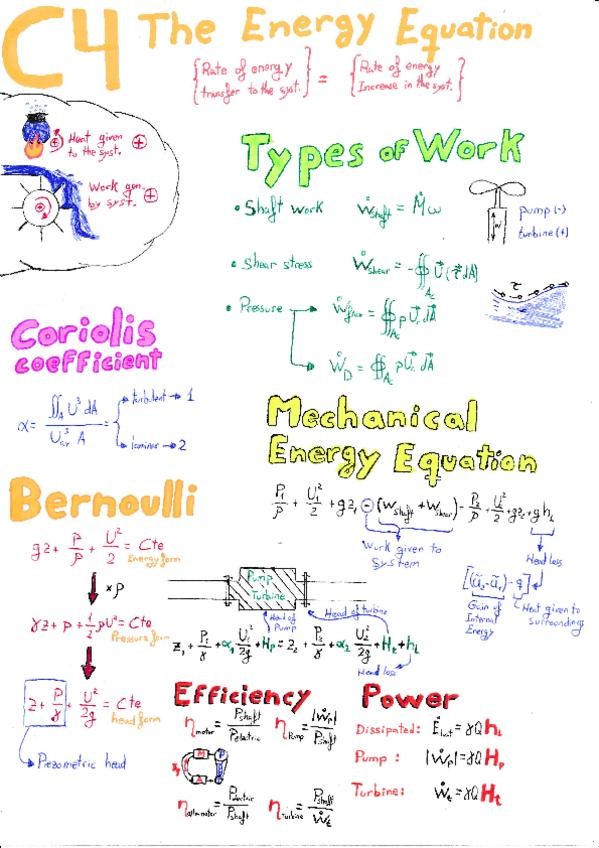 C4 The Energy Equation
{Rate of energy transfer to the syst.} = {Rate of energy Increase in the syst.}
Heat given to the syst. +
Work gen. by syst. +
Types of Work
• Shaft work Ẇshaft = Ṁω
pump (-)
turbine (+)
• Shear stress Ẇshear = -∯Ac U⃗(τ⃗ dA)
τ
• Pressure
= ∯Ac pU⃗ dA⃗
ẆD = ∯Ac pU⃗ dA⃗
Coriolis
coefficient
α = ∬A U³ dA / A =
turbulent → 1
laminar → 2
Mechanical
Energy Equation
P₁/ρ + U₁²/2 + gz₁ - (Wshaft + Wshear) = P₂/ρ + U₂²/2 + gz₂ + ghL
Work given to System
Head loss
[(ũ₂-ũ₁) - q]
Gain of Internal Energy
Heat given to Surrounding
Bernoulli
gz + P/ρ + U²/2 = Cte
Energy form
×ρ
γz + p + 1/2 ρU² = Cte
Pressure form
z + P/γ + U²/2g = Cte
head form
Piezometric head
Pump
Turbine
Head of Pump
Head of turbine
z₁ + P₁/γ + α₁ U₁²/2g + Hp = z₂ + P₂/γ + α₂ U₂²/2g + Ht + hL
Head loss
Efficiency
ηmotor = Pshaft/Pelectric ηPump = |Ẇp|/Pshaft
M P
A
ηalternator = Pelectric/Pshaft ηTurbine = Pshaft/Ẇt
Power
Dissipated: Ėlost = γQhL
Pump : |Ẇp| = γQHp
Turbine: Ẇt = γQHt